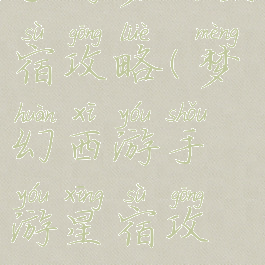 sù gōng lüè mèng
宿攻略(梦
huàn xī yóu shǒu
幻西游手
yóu xīng sù gōng
游星宿攻